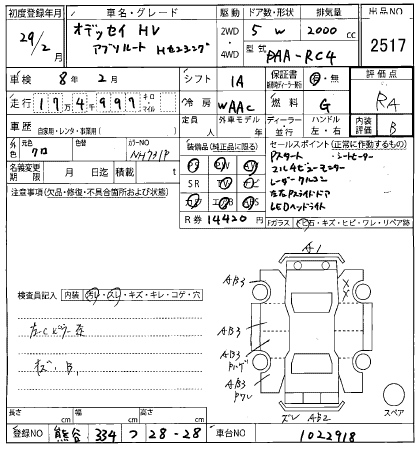 初度登録年月 車名・グレード 駆動 ドア数・形状 排気量 出品NO
29/2 オデッセイ HV 2WD 4WD 5 W 2000 cc 2517
アブソルート Hセンシング 型式 DAA-RC4
車検 8年 2月 シフト IA 保証書 有・無 評価点
走行 17万4999 キロ・マイル 冷房 WAAC 燃料 G RA
車歴 自家用・レンタ・事業用( ) 定員 人 外車モデル 年 ディーラー・並行 ハンドル 左・右 内装評価 B
元色 クロ 色替 カラーNO NH731P 装備品(純正品に限る) セールスポイント(正常に作動するもの)
名義変更期限 月 日迄 積載量 t Pスタート シートヒーター
注意事項(欠品・修復・不具合箇所および状態) SR マルチビューモニター
レーダークルコン
左右Pスライドドア
LEDヘッドライト
R券 14420 円 Fガラス 石・キズ・ヒビ・ワレ・リペア跡
A1
AB3
検査員記入 内装 汚れ・スレ・キズ・キレ・コゲ・穴
AB3
左Cピラー
AB3
AB3
長さ cm 幅 cm 高さ cm ズレ AB2 スペア
登録NO 熊谷 334 つ 28-28 車台NO 1022918